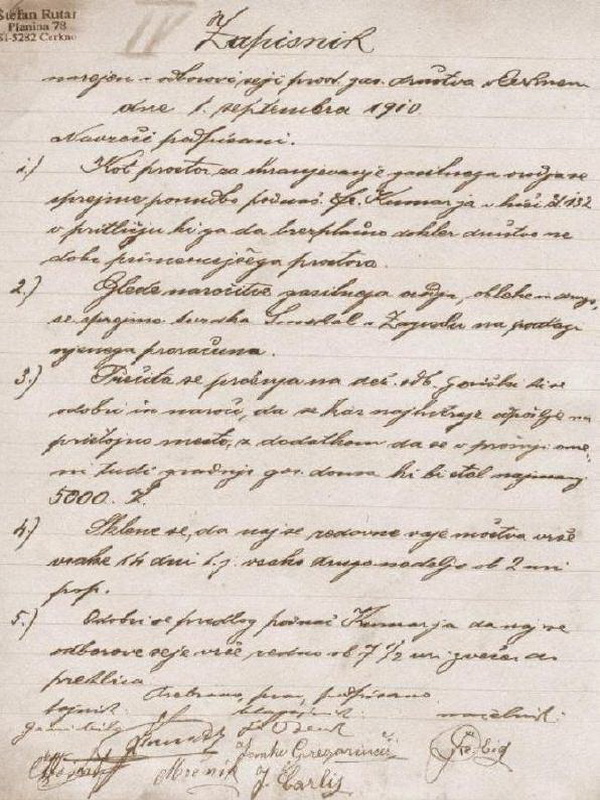 Štefan Rutar
Planina 78
SI-5282 Cerkno
IV
Zapisnik
narejen v odborovi seji prost. gas. društva v Cerknem
dne 1. septembra 1910
Navzoči podpisani.
1.) Kot prostor za shranjevanje gasilnega orodja se
sprejme ponudbo Fr. Kumarja v hiši št 132
v pritličju ki ga da brezplačno dokler društvo ne
dobi primernejšega prostora.
2.) Glede naročitve gasilnega orodja, obleke in drugo,
se sprejme tvrdka Smekal v Zagrebu na podlagi
njenega proračuna.
3.) Prečita se prošnja na dež. odb. goriški ki se
odobri in naroči, da se kar najhitreje odpošlje na
pristojno mesto, z dodatkom da se v prošnji ome-
ni tudi gradnje gas. doma ki bi stal najmanj
5000. K.
4.) Sklene se, da naj se redovne vaje moštva vrše
vsake 14 dni t. j. vsako drugo nedeljo ob 2 uri
pop.
5.) Odobri se predlog Kumarja da naj se
odborove seje vrše redno ob 7 1/2 uri zvečer
Prebrano, prav, podpisano
tajnik: blagajnik: načelnik:
Janko Gregorinčič
Močnik J. Carlis